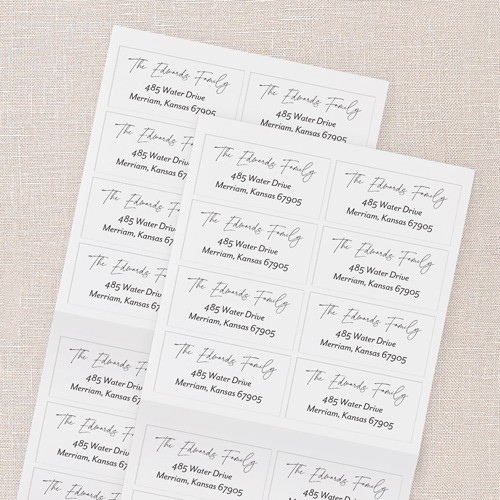 The Edwards Family
485 Water Drive
Merriam, Kansas 67905
The Edwards Family
485 Water Drive
Merriam, Kansas 67905
The Edwards
485 Water Drive
Merriam, Kansas
The Edwards
485 Water Drive
Merriam, Kansas
The Edwards
485 Water Drive
Merriam, Kansas
The Edwards
485 Water Drive
Merriam, Kansas
The Edwards
485 Water Drive
Merriam, Kansas
The Edwards
485 Water
The Edwards Family
485 Water Drive
Merriam, Kansas 67905
The Edwards Family
485 Water Drive
Merriam, Kansas 67905
The Edwards Family
485 Water Drive
Merriam, Kansas 67905
The Edwards Family
485 Water Drive
Merriam, Kansas 67905
The Edwards Family
485 Water Drive
Merriam, Kansas 67905
The Edwards Family
485 Water Drive
Merriam, Kansas 67905
The Edwards Family
485 Water Drive
Merriam, Kansas 67905
The Edwards Family
485 Water Drive
Merriam, Kansas 67905
The Edwards Family
485 Water Drive
Merriam, Kansas 67905
The Edwards Family
485 Water Drive